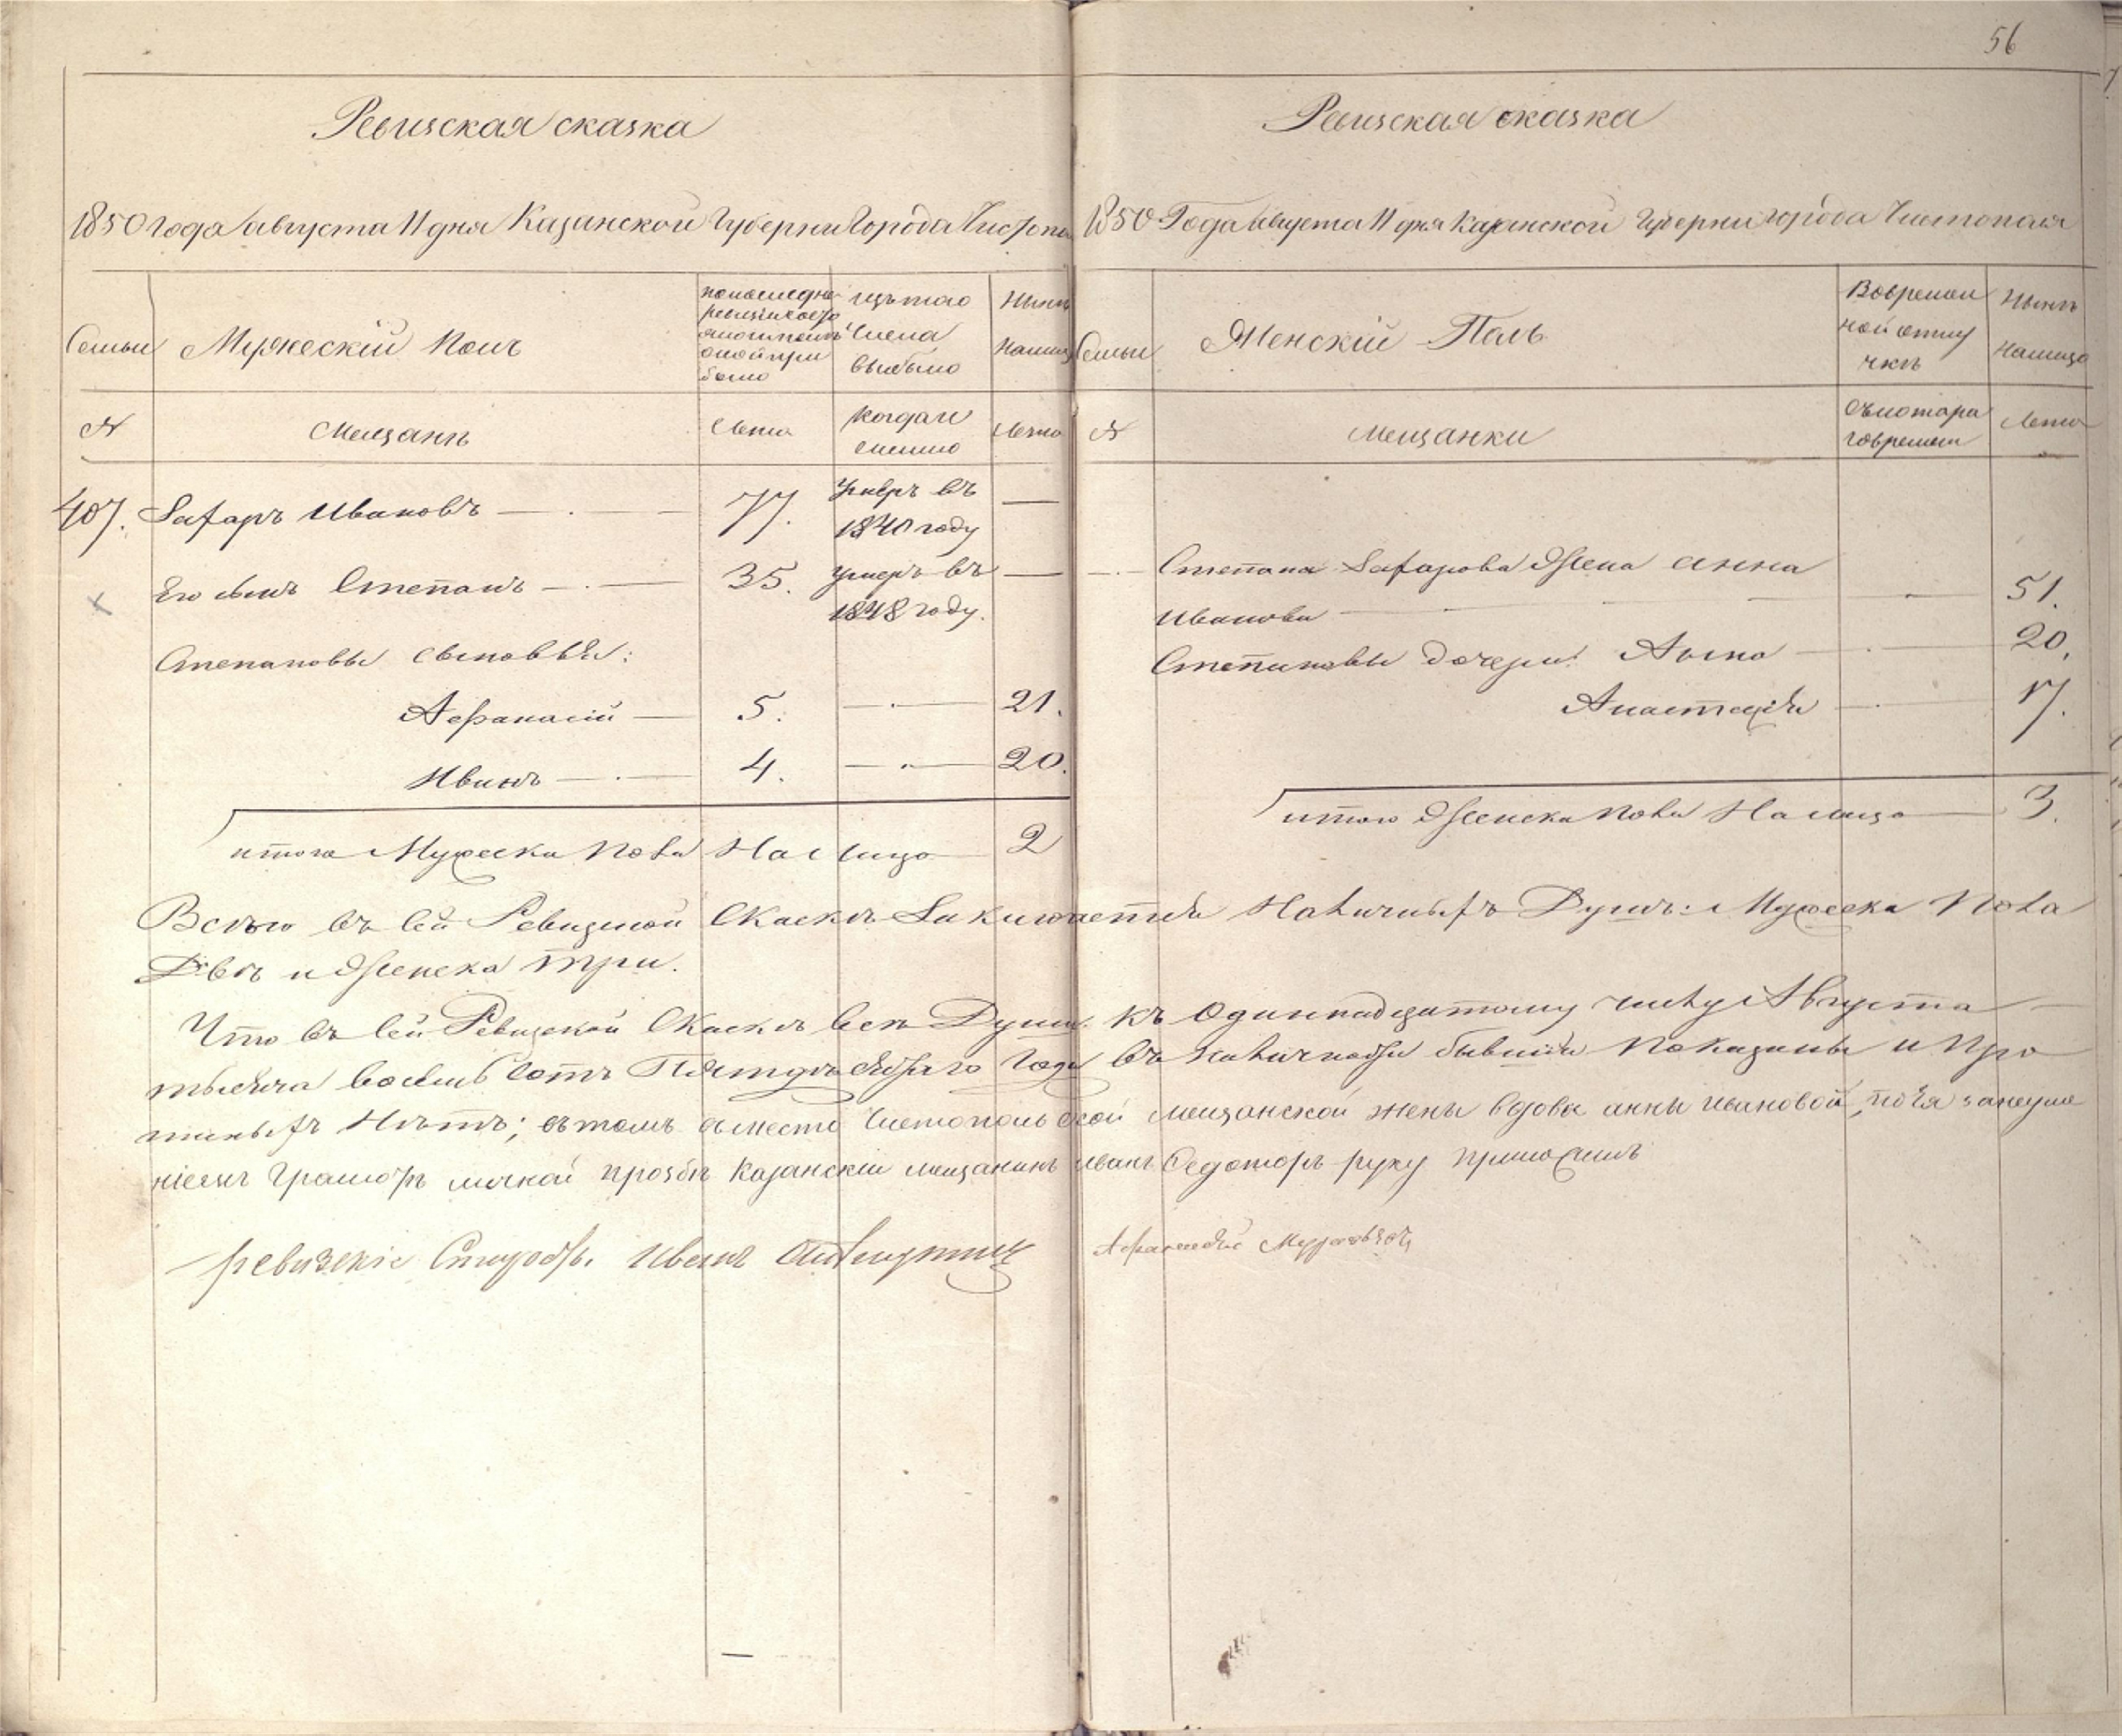 56
Ревизская сказка
1850 года августа 11 дня Казанской Губерни Города Чистопо
Семьи
Мужескій Полъ
по последне
ревизіи
было
изътаго
числа
выбыло
Ныне
налицо
№
Мещане
Лета
когда и
имяно
Лета
407. Захаръ Ивановъ 77. Умеръ въ
1840 году
Его сынъ Степанъ 35. Умеръ въ
1848 году.
Степановы сыновья:
Афанасій 5. 21.
Иванъ 4. 20.
итого Мужеска Пола На Лицо 2
Ревизская сказка
1850 Года Августа 11 дня Казанской Губерни города Чистополя
Семьи
Женскій Полъ
Вовремен
ной отлу
чкѣ
Ныне
Налицо
№
мещанки
съкотора
говремени
Лета
Степана Захарова Жена Анна
Иванова 51.
Степановы дочери: Анна 20.
Анастасія 17.
итого Женска Пола На лицо 3.
Всего въ сей Ревизской Скаскѣ Заключается Наличныхъ Душъ: Мужеска Пола
Двѣ и Женска три.
Что въ сей Ревизской Скаскѣ все Души къ Одиннадцатому числу Августа
тысяча восемь сотъ Пятидесятаго Года въ наличности бывшія Показаны и Про
писныхъ Нѣтъ; въ томъ вместо Чистопольской мещанской жены вдовы анны ивановой, поея занеуме
ніемъ грамотѣ личной прозбѣ Казанскій мещанинъ иванъ Федотовъ руку приложилъ
ревизскіе Иванъ